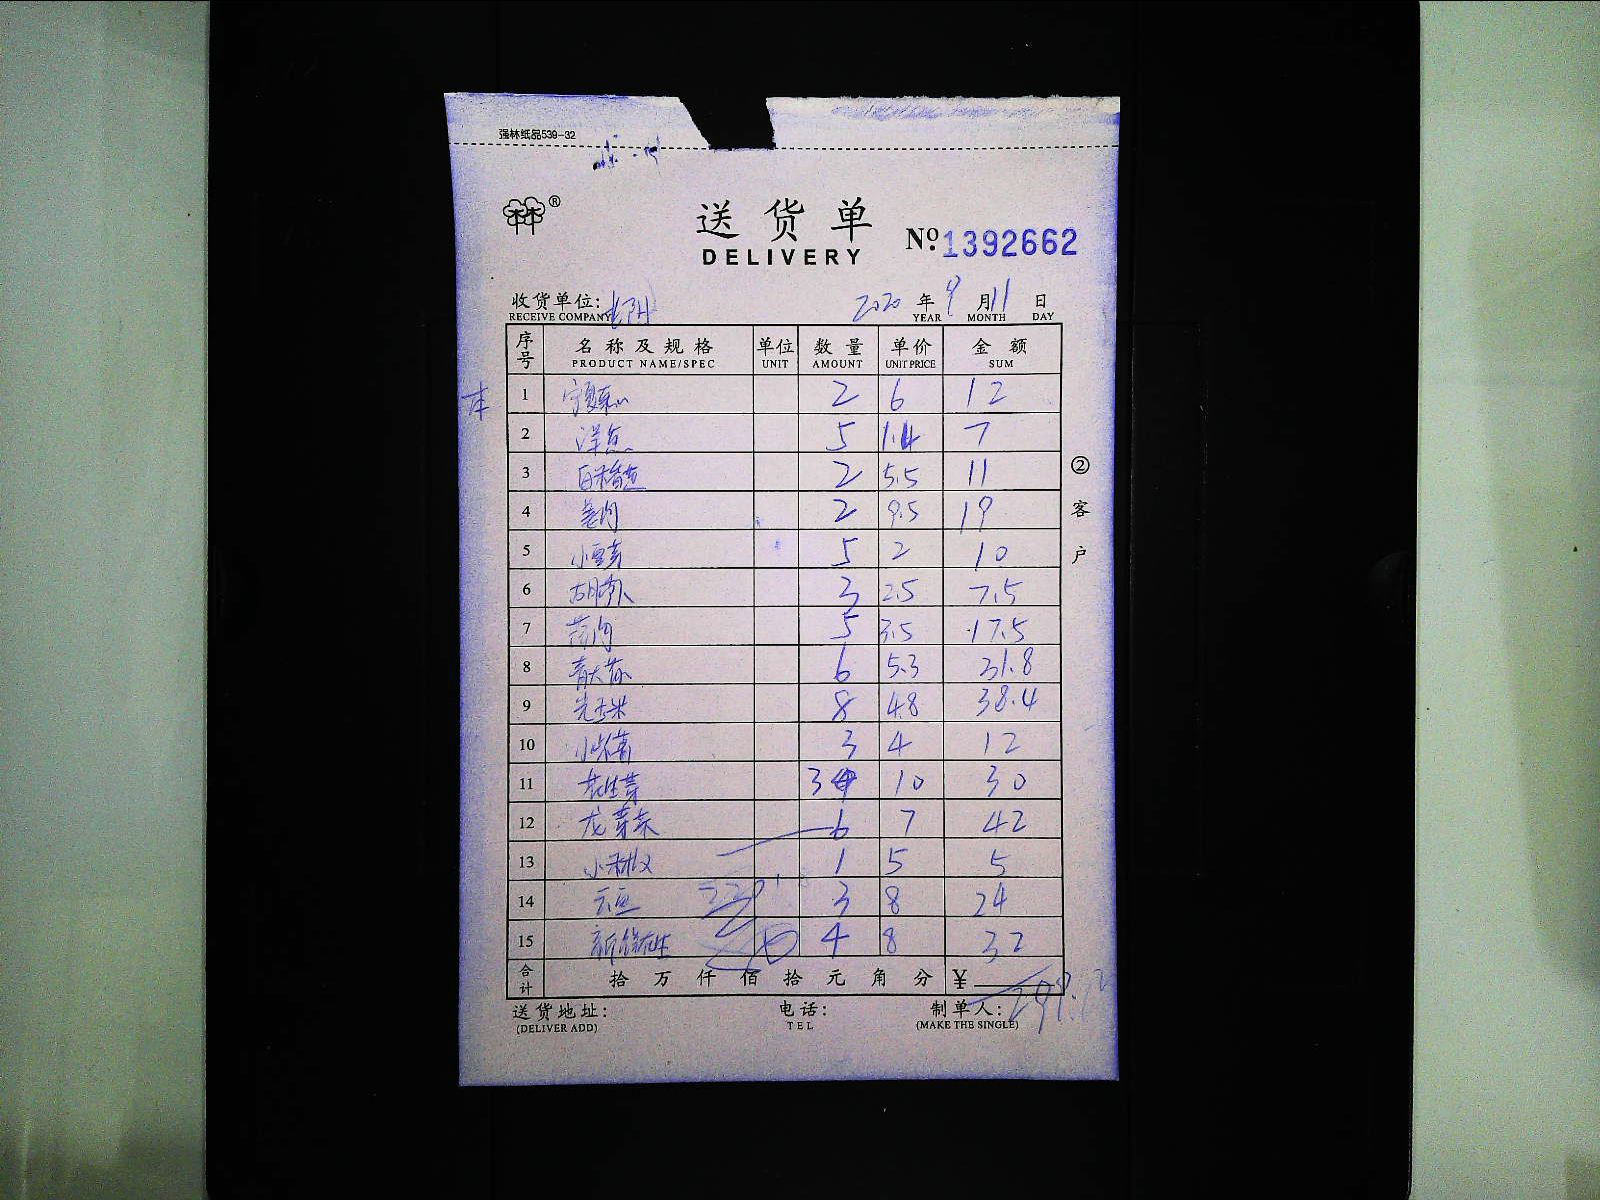 强林纸品539-32
送货单
DELIVERY
№ 1392662
收货单位:
RECEIVE COMPANY
2020 年 9 月 11 日
YEAR MONTH DAY
序号 名称及规格 单位 数量 单价 金额
PRODUCT NAME/SPEC UNIT AMOUNT UNIT PRICE SUM
1 宁夏菜心 2 6 12
2 洋葱 5 1.4 7
3 2 5.5 11
4 姜肉 2 9.5 19
5 小豆芽 5 2 10
6 胡萝卜 3 2.5 7.5
7 5 3.5 17.5
8 青大 6 5.3 31.8
9 光玉米 8 4.8 38.4
10 小 3 4 12
11 花生芽 3 10 30
12 龙芽菜 6 7 42
13 小 1 5 5
14 云豆 3 8 24
15 新鲜花生 4 8 32
合计 拾 万 仟 佰 拾 元 角 分 ¥
送货地址: 电话: 制单人:
(DELIVER ADD) TEL (MAKE THE SINGLE)
②客户